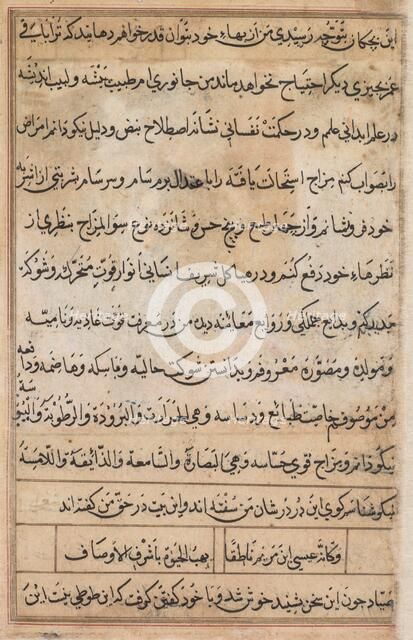 این بچکان بتو چه رسیدی من از بهاء خود بتوان قدر خواهم رهانید که ترا
چیزی دیکر احتیاج نخواهد ماند من جانوری ام طبیب پیشه و لبیب اندیشه
در علم ابدانی علیم و در حکمت نفسانی نشانه اصطلاح نبض و دلیل نیکو دانم امراض
را بصواب کنم مزاج استحالت یافته را باعتدال برم سام و سرسام بشربتی از اشربه
خود فرو نشانم و از چهار طبع و پنج حس و شانزده نوع سوء المزاج بنظری از
نظرهاء خود دفع کنم و در هیاکل انسانی انوار قوت متحرک و شوکت
و بدایع و روایع معاینه دیدن من در معرفت قوت غاذیه و نامیه
و مولده و مصوره معروفم و بدانستن شوکت و ماسکه و هاضمه و دافعه
من موصوفم طبائع وهی الحرارت والبرودة والرطوبة والیبوسة
نیکو دانم و مزاج قوی حساسه وهی الباصرة والسامعة والذائقة واللامسة
نیکو شناسم کوی این در در شان من سفته اند و این بیت در حق من کفته اند
وکانه عیسی ابن مریم ناطقا یهب الحیوة باشرف الاوصاف
صیاد چون این سخن شنید خوشتر شد و با خود کفتن کرفت که این طوطی نیت این